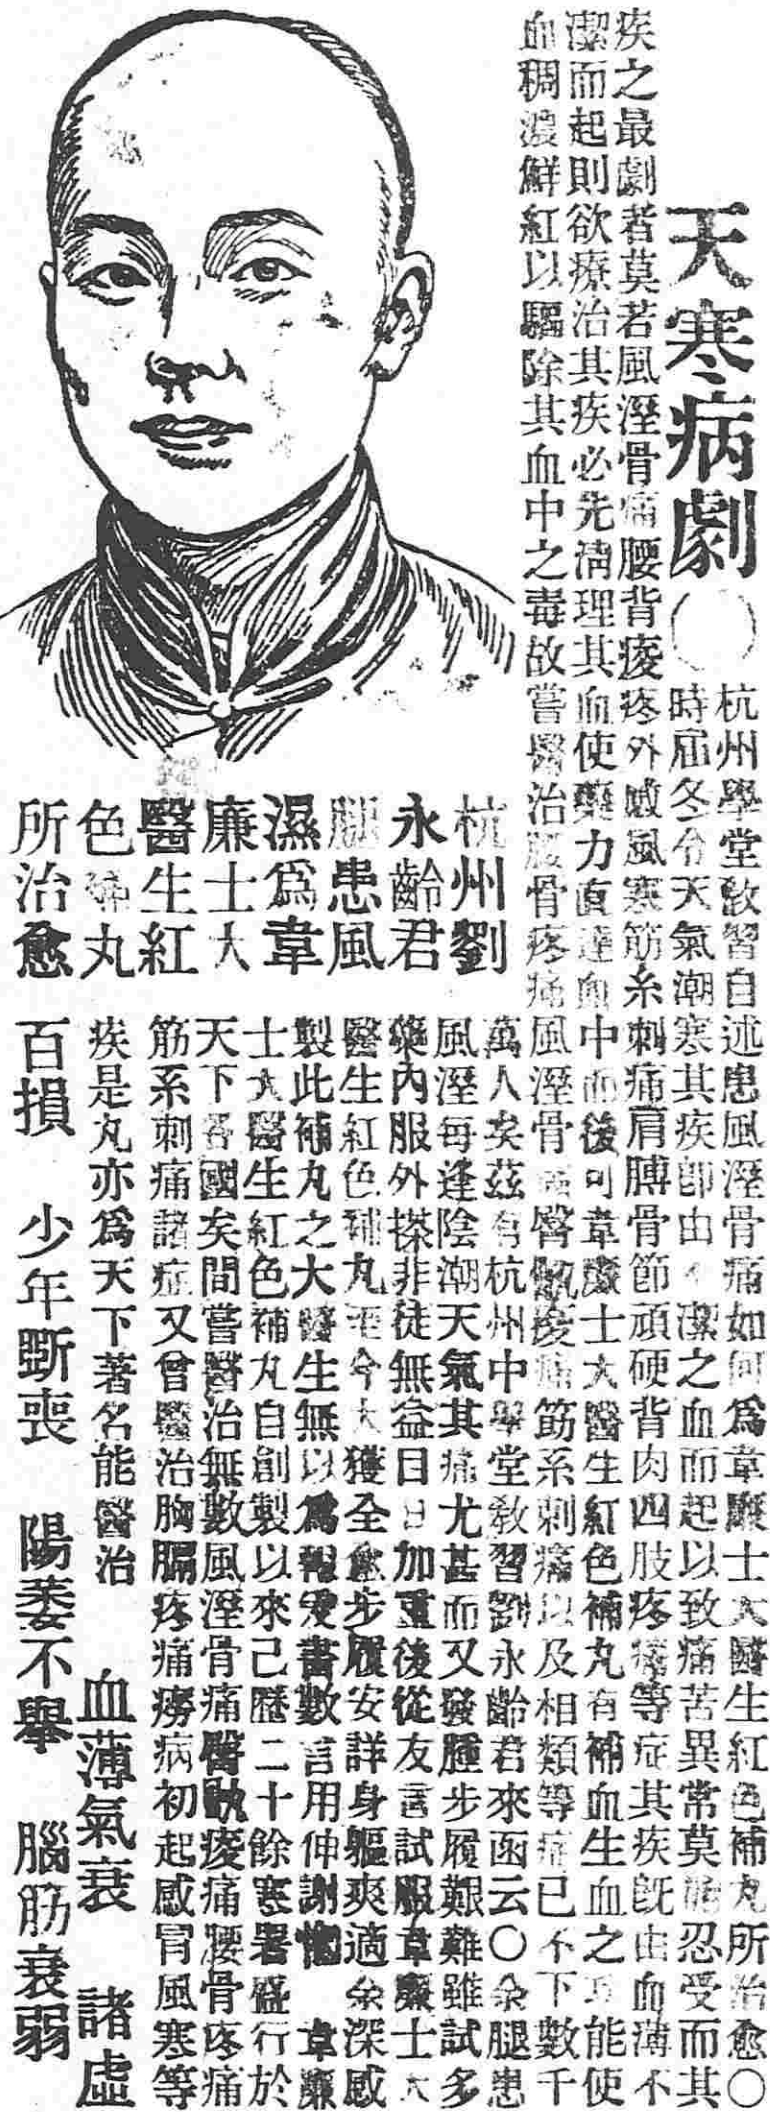 天寒病劇
杭州學堂敎習自述患風溼骨痛如何爲韋廉士大醫生紅色補丸所治愈〇
時屆冬令天氣潮寒其疾卽由不潔之血而起以致痛苦異常莫能忍受而其
疾之最劇者莫若風溼骨痛腰背痠疼外感風寒筋系刺痛肩膊骨節頑硬背肉四肢疼痛等症其疾旣由血薄不
潔而起則欲療治其疾必先淸理其血使藥力直達血中而後可韋廉士大醫生紅色補丸有補血生血之功能使
血稠濃鮮紅以驅除其血中之毒故嘗醫治腰骨疼痛風溼骨痛臀骩痠痛筋系刺痛以及相類等症已不下數千
萬人矣茲有杭州中學堂敎習劉永齡君來函云〇余腿患
風溼每逢陰潮天氣其痛尤甚而又發腫步履艱難雖試多
藥內服外搽非徒無益日日加重後從友言試服韋廉士大
醫生紅色補丸至今大獲全愈步履安詳身軀爽適余深感
製此補丸之大醫生無以爲報爰書數言用伸謝悃 韋廉
士大醫生紅色補丸自創製以來已歷二十餘寒暑盛行於
天下各國矣間嘗醫治無數風溼骨痛臀骩痠痛腰骨疼痛
筋系刺痛諸症又曾醫治胸膈疼痛癆病初起感冒風寒等
疾是丸亦爲天下著名能醫治 血薄氣衰 諸虛
百損 少年斲喪 陽萎不舉 腦筋衰弱
杭州劉
永齡君
腿患風
濕爲韋
廉士大
醫生紅
色補丸
所治愈